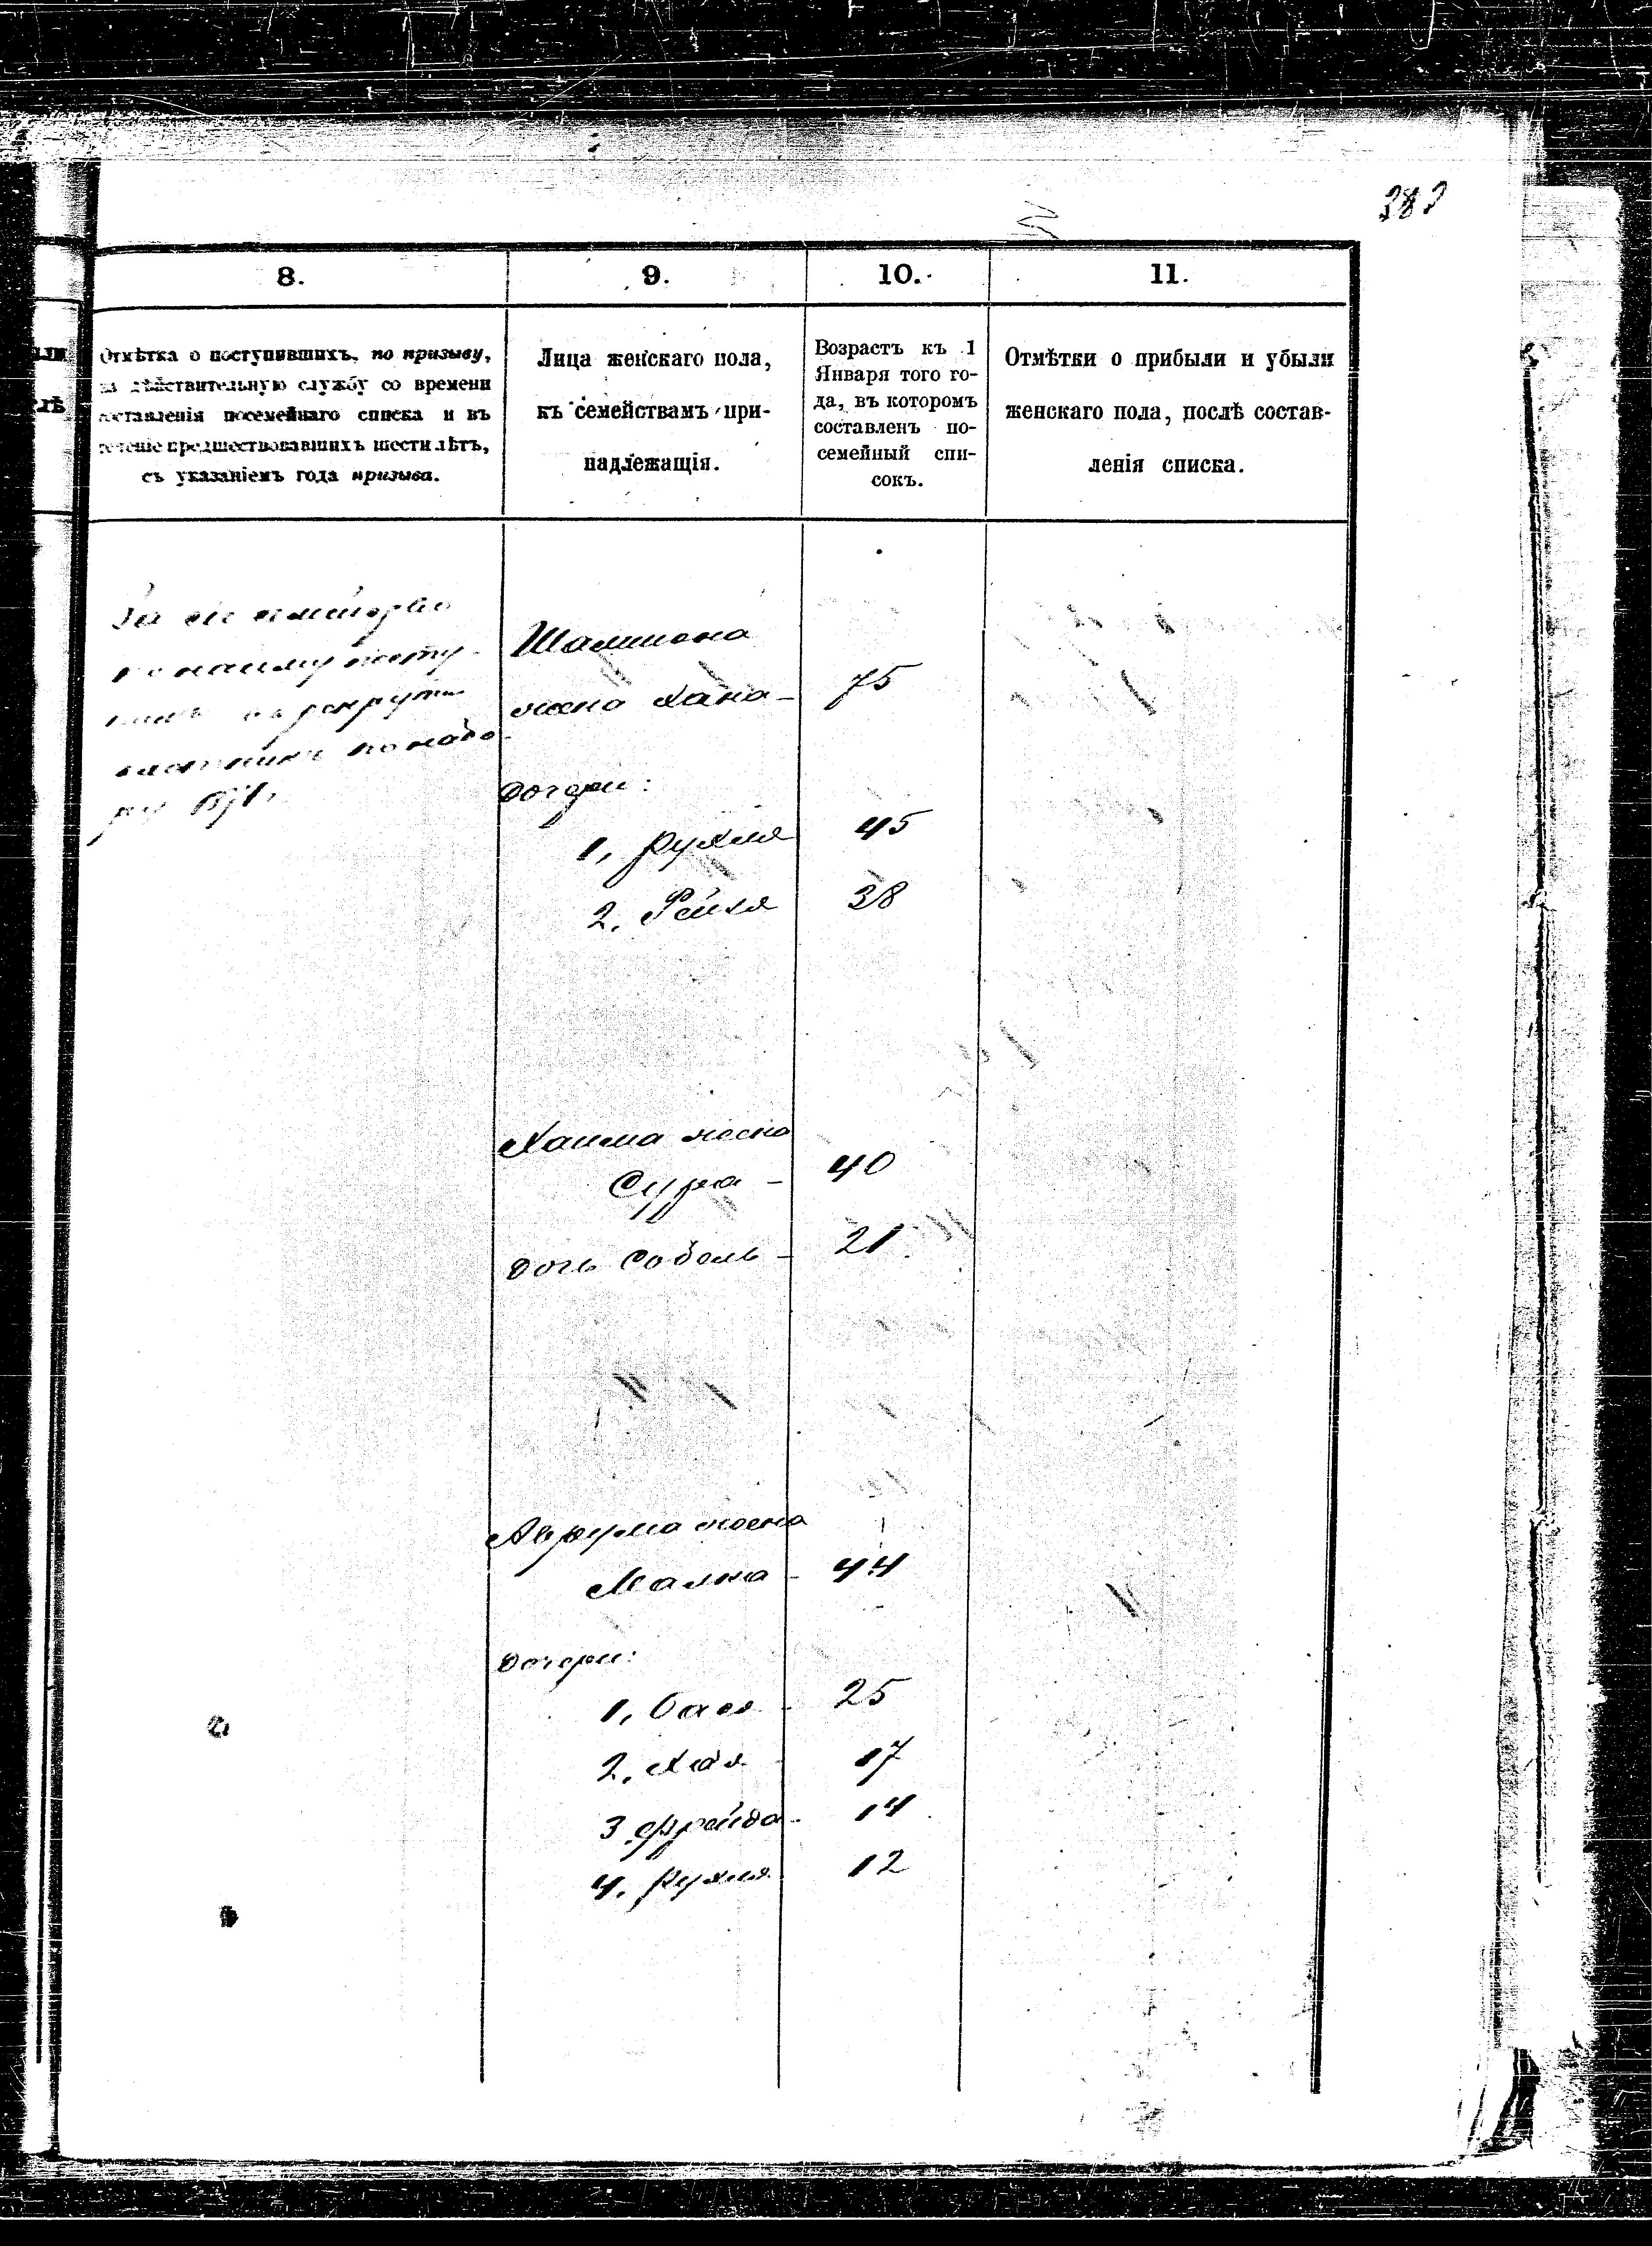 382
8. 9. 10. 11.
Отмѣтка о поступившихъ, по призыву,
на дѣйствительную службу со времени
составленія посемейнаго списка и въ
теченіе предшествовавшихъ шести лѣтъ,
съ указаніемъ года призыва.
Лица женскаго пола,
къ семействамъ при-
надлежащія.
Возрастъ къ 1
Января того го-
да, въ которомъ
составленъ по-
семейный спи-
сокъ.
Отмѣтки о прибыли и убыли
женскаго пола, послѣ состав-
ленія списка.
За сіе семейство
по найму посту-
пилъ въ рекруты
по набо-
ру
Шлиомa
жена Хана - 75
дочери:
1, Рухля 45
2. Рейзя 38
Хаима жена
Сура - 40
дочь Соболь - 21
Аврума жена
Малка - 44
дочери:
1, Бася - 25
2. Хая 17
3 Фрейда - 14
4. Рухля 12